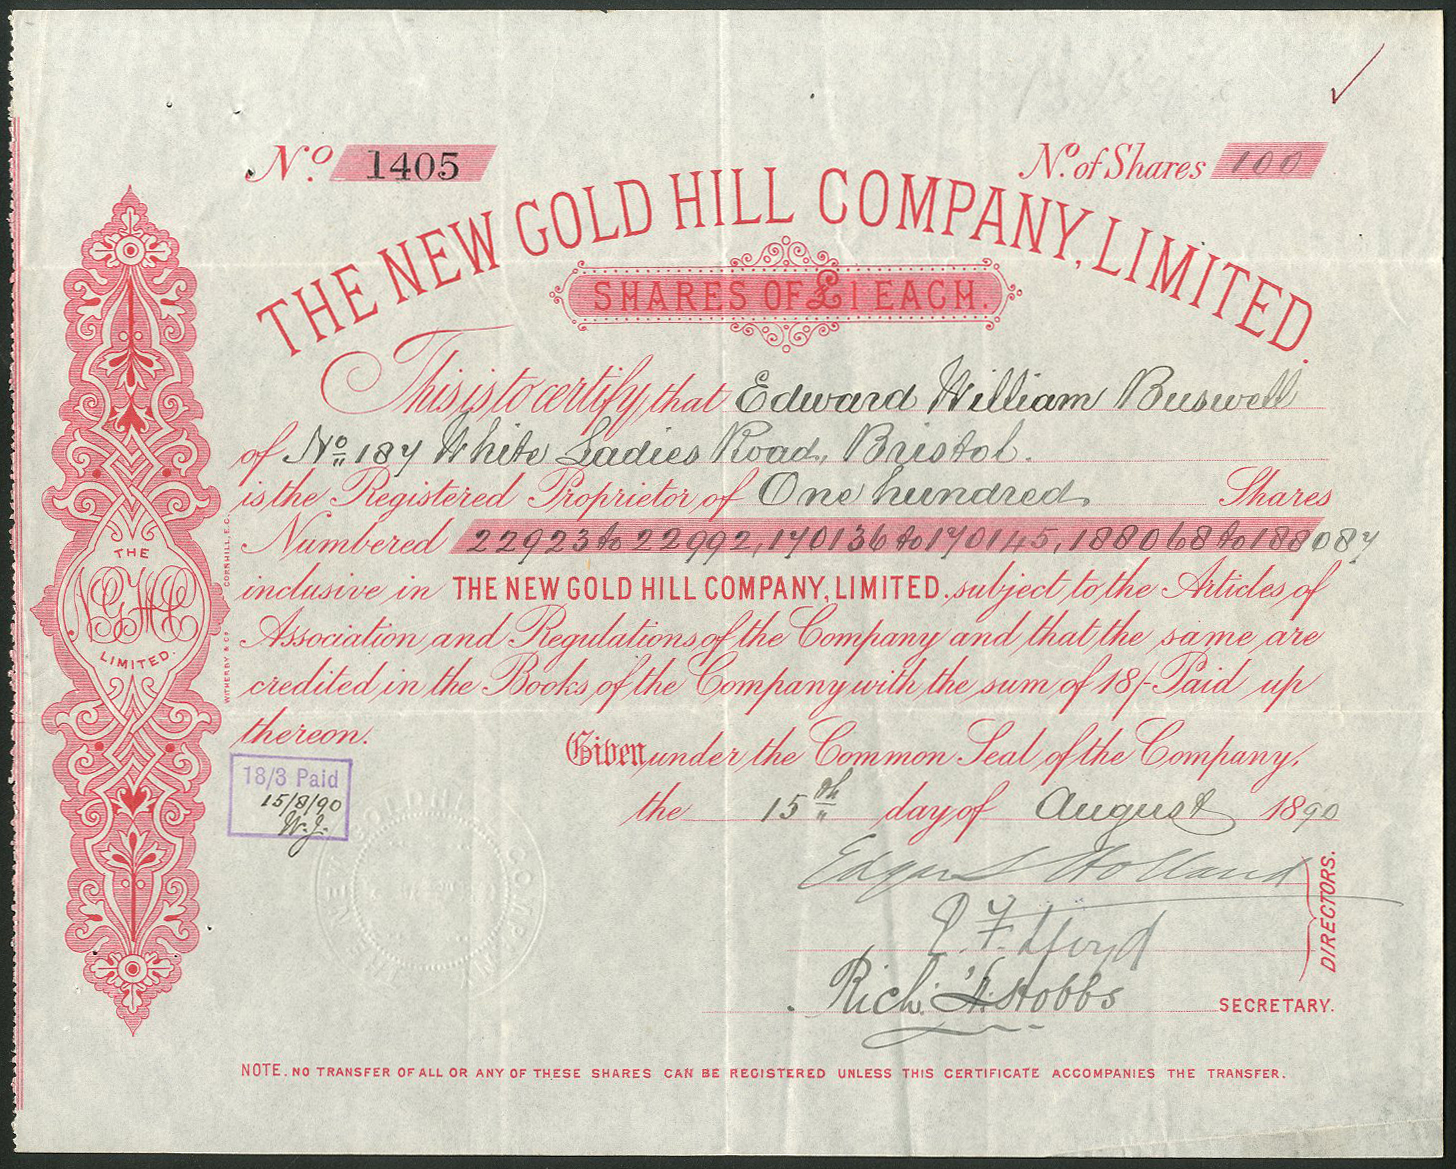 No. 1405
No. of Shares 100
THE NEW GOLD HILL COMPANY, LIMITED.
SHARES OF £1 EACH.
This is to certify that Edward William Buswell
of No. 187 White Ladies Road, Bristol.
is the Registered Proprietor of One hundred Shares
Numbered 22923 to 22992, 170136 to 170145, 188068 to 188087
inclusive in THE NEW GOLD HILL COMPANY, LIMITED. subject to the Articles of
Association and Regulations of the Company and that the same are
credited in the Books of the Company with the sum of 18/- Paid up
thereon.
Given under the Common Seal of the Company,
the 15th day of August 1890
18/3 Paid
15/8/90
W.J.
THE
NGHC
LIMITED.
WITHERBY & Co. CORNHILL, E.C.
Holland
Lloyd
DIRECTORS.
Rich. H. Stobbs SECRETARY.
NOTE. NO TRANSFER OF ALL OR ANY OF THESE SHARES CAN BE REGISTERED UNLESS THIS CERTIFICATE ACCOMPANIES THE TRANSFER.